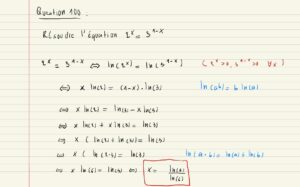 Question 100
Résoudre l'équation 2^x = 3^(1-x)
2^x = 3^(1-x) ⇔ ln(2^x) = ln(3^(1-x)) (2^x>0, 3^(1-x)>0 ∀x)
⇔ x ln(2) = (1-x)·ln(3) ln(a^b) = b ln(a)
⇔ x ln(2) = ln(3) - x ln(3)
⇔ x ln(2) + x ln(3) = ln(3)
⇔ x (ln(2) + ln(3)) = ln(3)
⇔ x ( ln(2·3) = ln(3) ln(a·b) = ln(a) + ln(b)
⇔ x ln(6) = ln(3) ⇔ x = ln(3)/ln(6)